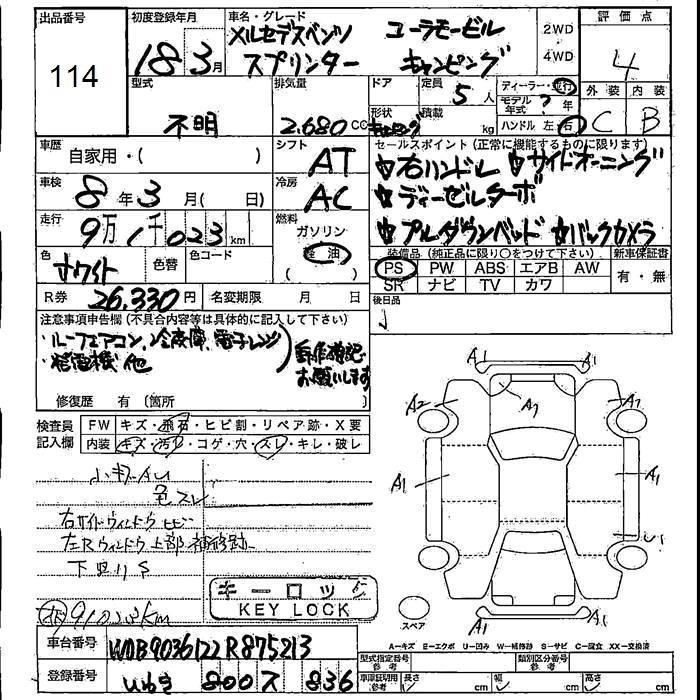 出品番号 初度登録年月 車名・グレード 評価点
114 18 3月 メルセデスベンツ ユーラモービル 2WD 4
スプリンター キャンピング 4WD
型式 排気量 ドア 定員 ディーラー・並行 外装 内装
不明 2.680 CC 5人 モデル年式 ? 年 C B
形状 積載 kg ハンドル 左・右
車歴 シフト セールスポイント (正常に機能するものに限ります)
自家用・( ) AT ☆右ハンドル ☆サイドオーニング
車検 冷房 ☆ディーゼルターボ
8年3月( 日) AC ☆プルダウンベッド ☆バックカメラ
走行 燃料
9万1千023km ガソリン
色 色替 色コード 軽油 装備品 (純正品に限り○をつけて下さい) 新車保証書
ホワイト PS PW ABS エアB AW 有・無
R券 26,330円 名変期限 月 日 SR ナビ TV カワ
注意事項申告欄 (不具合内容等は具体的に記入して下さい) 後日品
・ルーフエアコン、冷蔵庫、電子レンジ 動作確認
・発電機 他 お願いします
修復歴 有 (箇所 )
検査員 FW キズ・飛石・ヒビ割・リペア跡・X要
記入欄 内装 キズ・汚レ・コゲ・穴・スレ・キレ・破レ
小キズAU
色スレ
右サイドウィンドウ ヒビ
左Rウィンドウ上部補修跡
下回りS
キーロック
KEY LOCK
A1 A1
A2 A1 A1
A1 A1
U1
スペア A1 A1
A=キズ E=エクボ U=凹み W=補修跡 S=サビ C=腐食 XX=交換済
車台番号 WDB9036122R875213 型式指定番号 参考 類別区分番号 参考
登録番号 いわき 800 ス 836 車庫証明用 参考 長さ cm 幅 cm 高さ cm